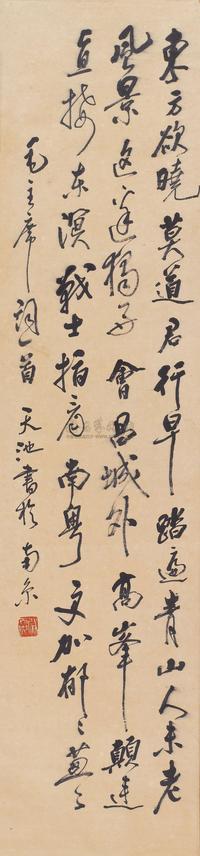 東方欲曉莫道君行早踏遍青山人未老
風景这邊獨好會昌城外高峯顛連
直接东溟戰士指看南粤更加郁々葱々
毛主席詞一首 天池書於南京